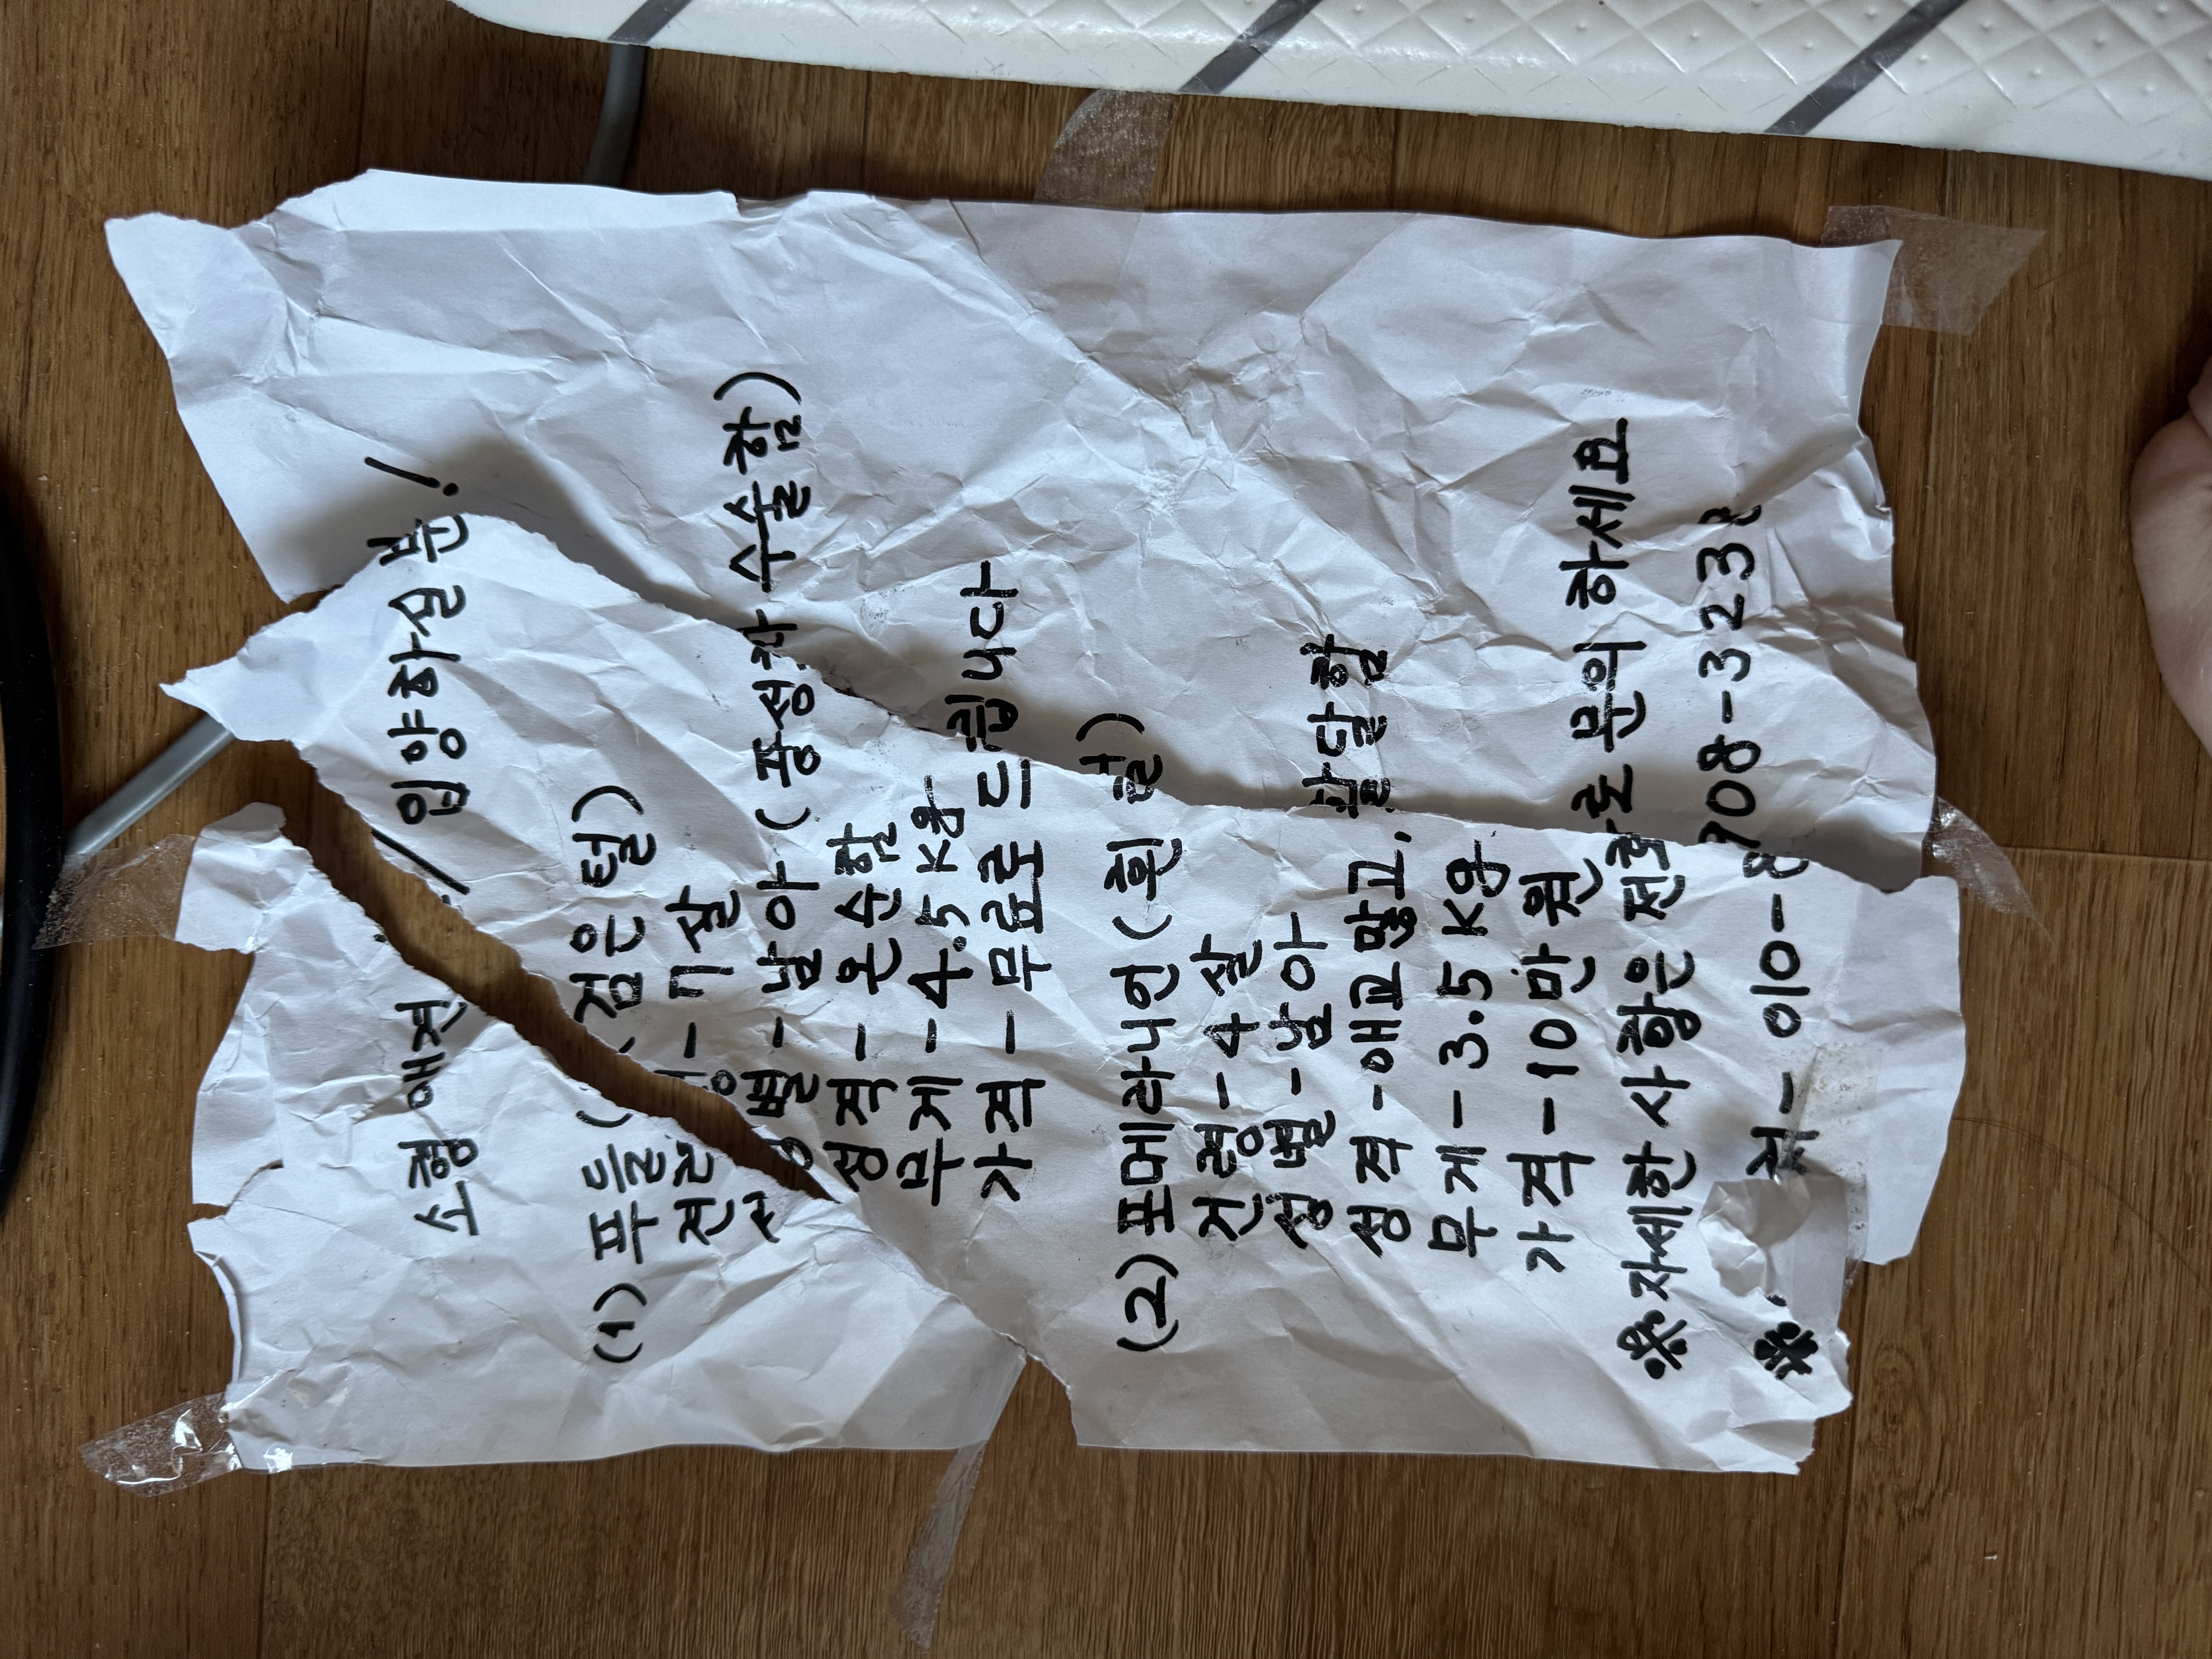 소형 애견 입양하실 분!
(1) 푸들 (검은 털)
견령 - 7살
성별 - 남아 (중성화 수술함)
성격 - 온순함
무게 - 4.5 Kg
가격 - 무료로 드립니다
(2) 포메라니언 (흰 털)
견령 - 4살
성별 - 남아
성격 - 애교 많고, 활달함
무게 - 3.5 Kg
가격 - 10만원
※ 자세한 사항은 전화로 문의 하세요
※